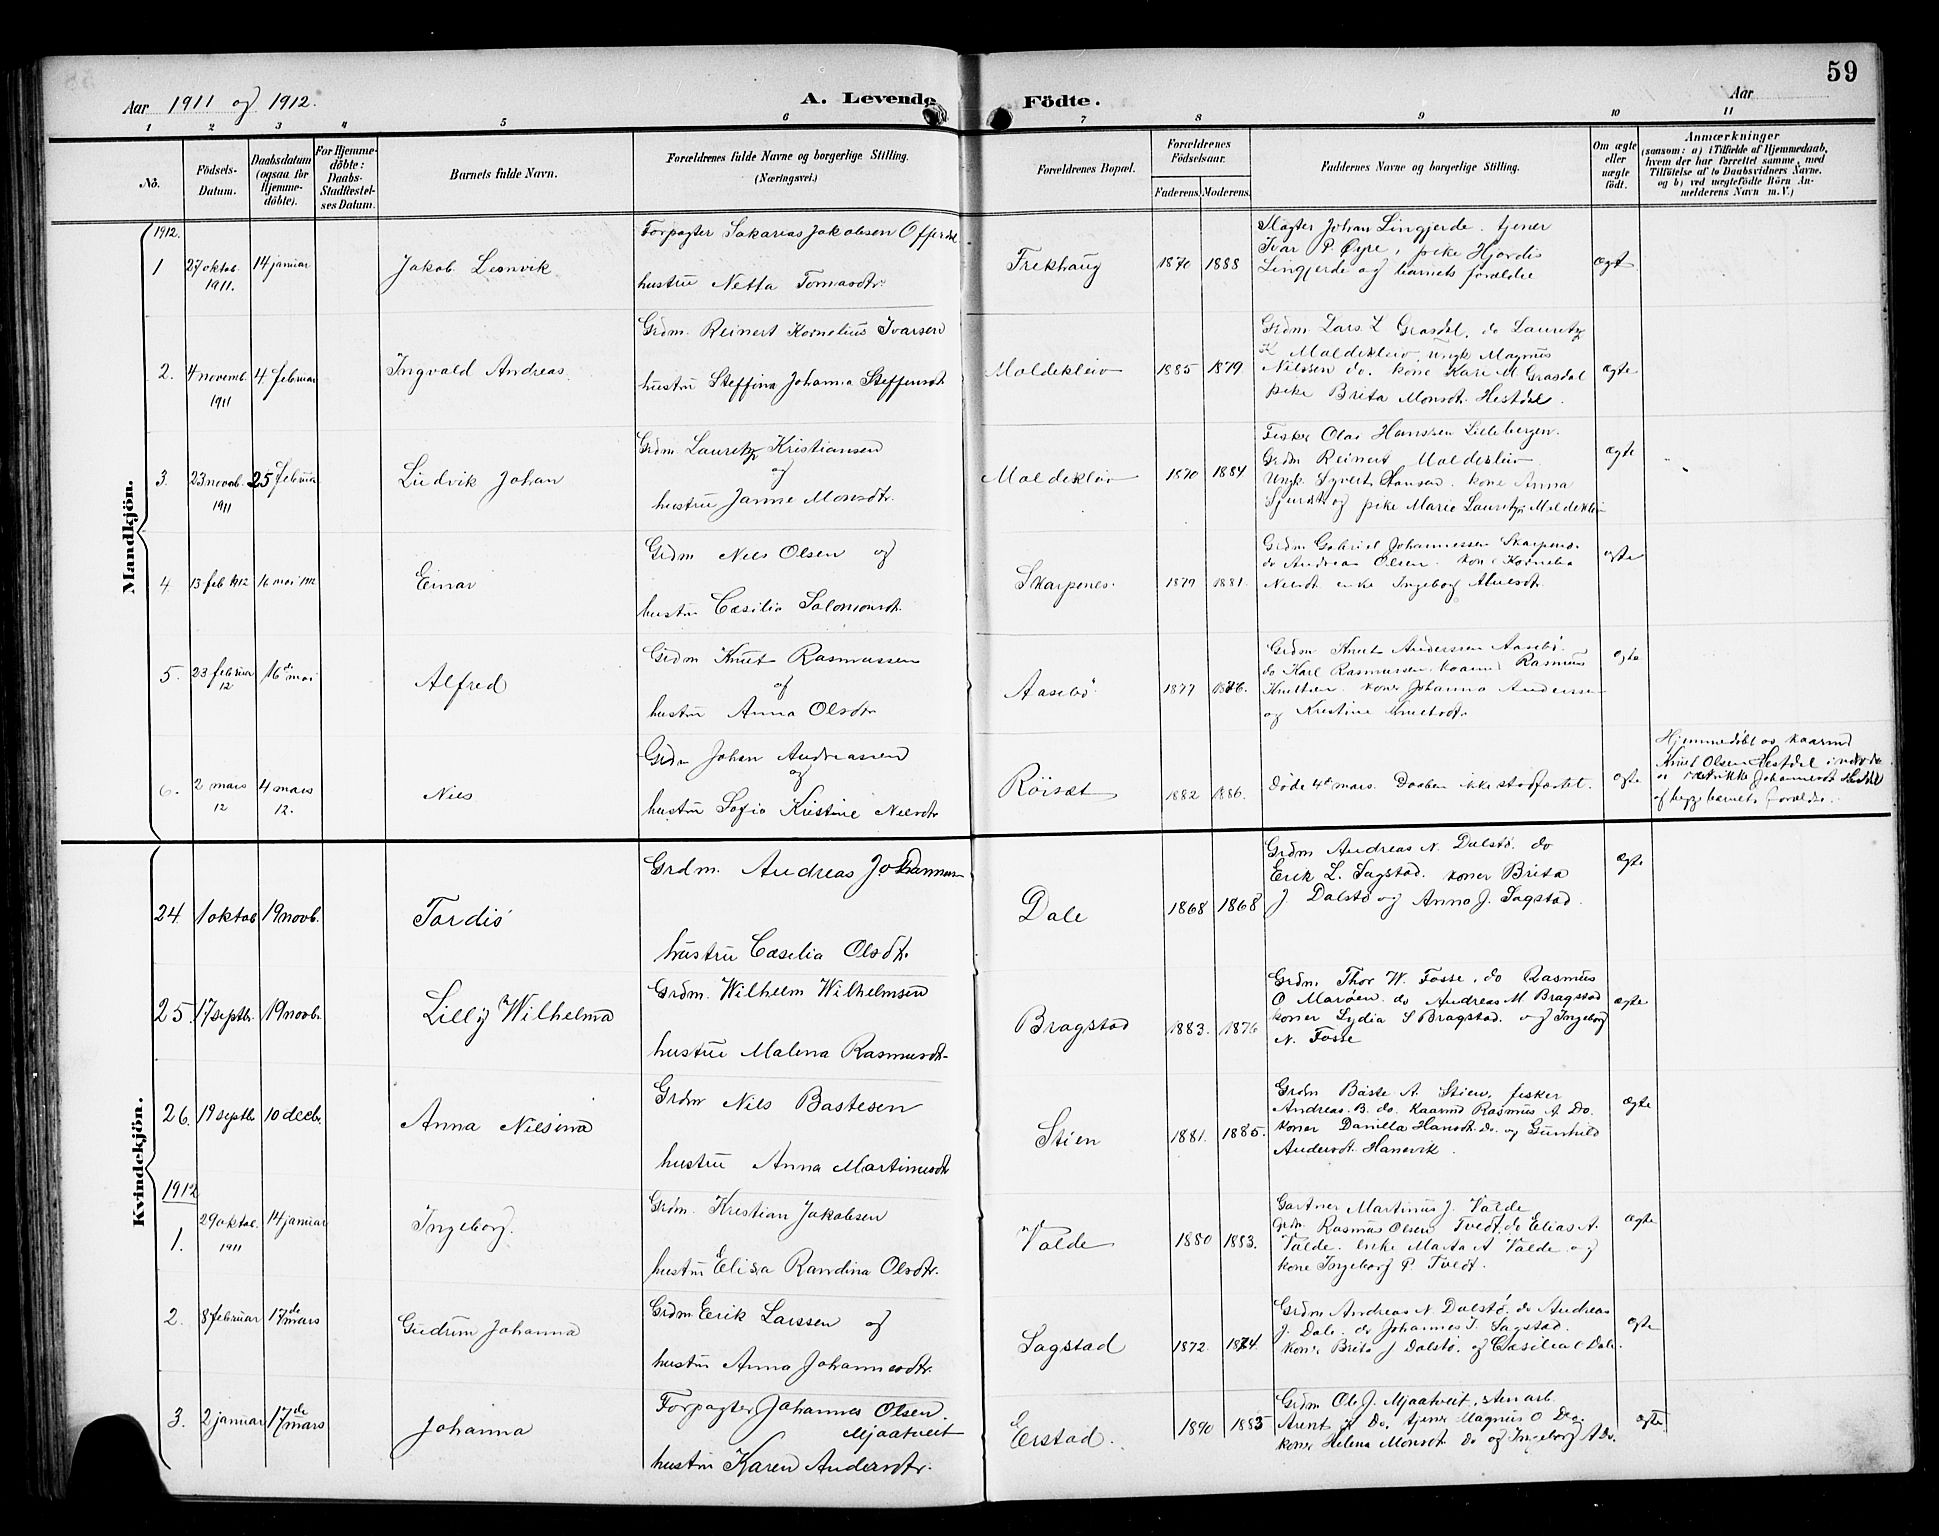 59
Aar 1911 og 1912.
A. Levende Födte.
Aar
1 2 3 4 5 6 7 8 9 10 11
No.
Födsels-Datum.
Daabsdatum (ogsaa for Hjemme-döbte).
For Hjemme-döbte: Daabs-Stadfæstel-ses Datum.
Barnets fulde Navn.
Forældrenes fulde Navne og borgerlige Stilling. (Næringsvei.)
Forældrenes Bopæl.
Forældrenes Födselsaar.
Faderens. Moderens.
Faddernes Navne og borgerlige Stilling.
Om ægte eller uægte födt.
Anmærkninger
(saasom: a) i Tilfælde af Hjemmedaab, hvem der har forrettet samme, med Tilföielse af to Daabsvidners Navne, og b) ved uægtefödte Börn An-melderens Navn m.V.)
Mandkjön.
1912.
1 27 oktob. 1911. 14 januar Jakob Leonvik
Forpagter Sakarias Jakobsen Offerdal
hustru Netta Tomasdtr.
Frekhaug 1870 1888
Slagter Johan Lingjerde. tjener
Ivar P. Øyre, pike Hjordis
Lingjerde og barnets forældre
Ægt
2. 4 novemb. 1911 4 februar Ingvald Andreas
Grdm. Reinert Kornelius Ivarsen
hustru Steffina Johanna Steffensdt.
Moldekleiv 1885 1879
Grdm Lars L Grasdal, do Lauretz
K Moldekleiv, Ungk Magnus
Nilssen do. kone Kari M Grasdal
pike Brita Monsdt. Hestdal.
Ægte
3. 23 novb. 1911 25 februar Ludvik Johan
Grdm. Lauretz Kristiansen
og
hustru Janne Monsdtr.
Moldekleiv 1870 1884
Fisker Olai Hanssen Lillebergen.
Grdm Reinert Moldekleiv
Ungk. Syvert Hansen. kone Anna
Sjursdt og pike Marie Lauretz. Moldekleiv
Ægte
4 13 feb 1912 16 mai 1912 Einar
Grdm Nils Olsen og
hustru Cæsilia Salomonsdt.
Skarpenes. 1879 1881.
Grdm Gabriel Johannessen Skarpenes
do Andreas Olsen. kone Kornelia
Nilsdt. enke Ingeborg
ægte
5. 23 februar 12 16de mai Alfred
Grdm Knut Rasmussen
og
hustru Anna Olsdtr
Aasebø 1877 1876.
Grdm Knut Anderssen Aasebø.
do Karl Rasmussen. kaarmd Rasmus
Knutsen. koner Johanna Anderse
og Kristine Knutsdt.
ægte
6. 2 mars 12 4 mars 12. Nils
Grdm Johan Andreassen
og
hustru Sofie Kristine Nilsdtr
Röisæt 1882 1886.
Døde 4de mars. Daaben ikke stadfæstet.
ægte
Hjemmedøbt av kaarmd
Knut Olsen Hestdal
Johannesdt Hestdal
begge barnets forældre.
Kvindekjön.
24. 1 oktob 19 novb. Tordis
Grdm. Andreas Johannesen
hustru Cæsilia Olsdt.
Dale 1868 1868
Grdm Andreas N. Dalstø. do
Erik L. Sagstad. koner Brita
J Dalstø og Anna J. Sagstad.
Ægte
25. 17 septbr. 19 novb. Lilly Wilhelma
Grdm. Wilhelm Wilhelmsen
hustru Malena Rasmusdt.
Bragstad 1883. 1876
Grdm. Thor W. Fosse. do Rasmus
O Marøen. do Andreas M Bragstad
koner Lydia S Bragstad. og Ingeborg
N. Fosse
ægte
26. 19 septb. 10 decb. Anna Nilsina
Grdm Nils Bastesen
hustru Anna Martinusdt
Stien 1881. 1885.
Grdm Baste A. Stien, fisker
Andreas. B. do. kaarmd Rasmus A Do.
koner Danilla Hansdt. do. og Gunhild
Andersdt. Hanevik.
Ægte
1912
1. 29 oktob. 1911 14 januar Ingeborg.
Grdm. Kristian Jakobsen
hustru Elisa Randina Olsdtr.
Valde 1880 1883.
Gartner Martinus J. Valde
Grdm. Rasmus Olsen Tvedt. do Elias A.
Valde. Enke Marta A Valde og
kone Ingeborg P. Tvedt.
Ægte
2. 8 februar 17de mars Gudrun Johanna
Grdm Erik Larssen og
hustru Anna Johannesdtr.
Sagstad 1872 1874.
Grdm Andreas N. Dalstø. do Andreas
J. Dale. do Johannes J. Sagstad.
kone Brita J Dalstø. og Cæsilia O Dale.
Ægte
3. 2 januar 17de mars Johanna
Forpagter Johannes Olsen.
Mjaatveit
hustru Karen Andersdtr.
Eristad. 1890 1885
Grdm Ole J. Mjaatveit, stenarb.
Arent J. Do. tjener Magnus O Do.
kone Helena Monsdt Do og Ingeborg A Do.
ægte